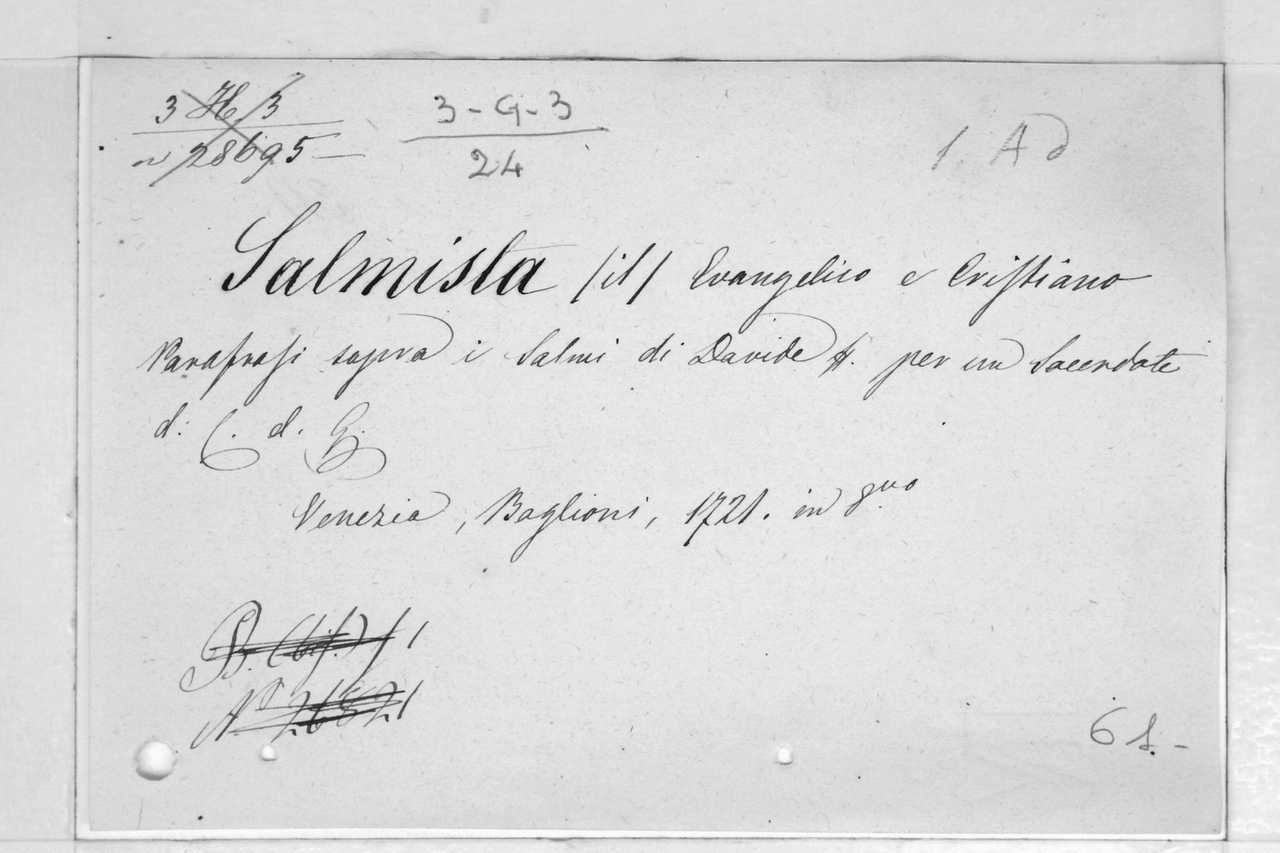 3 H/3
n 28695 —
3-G-3
24
1. A d
Salmista /il/ Evangelico e Cristiano
Parafrasi sopra i Salmi di Davide per un Sacerdote
d: C. d. G.
Venezia, Baglioni, 1721. in 8.vo
B. (bis.) / 1
No
6 1.-